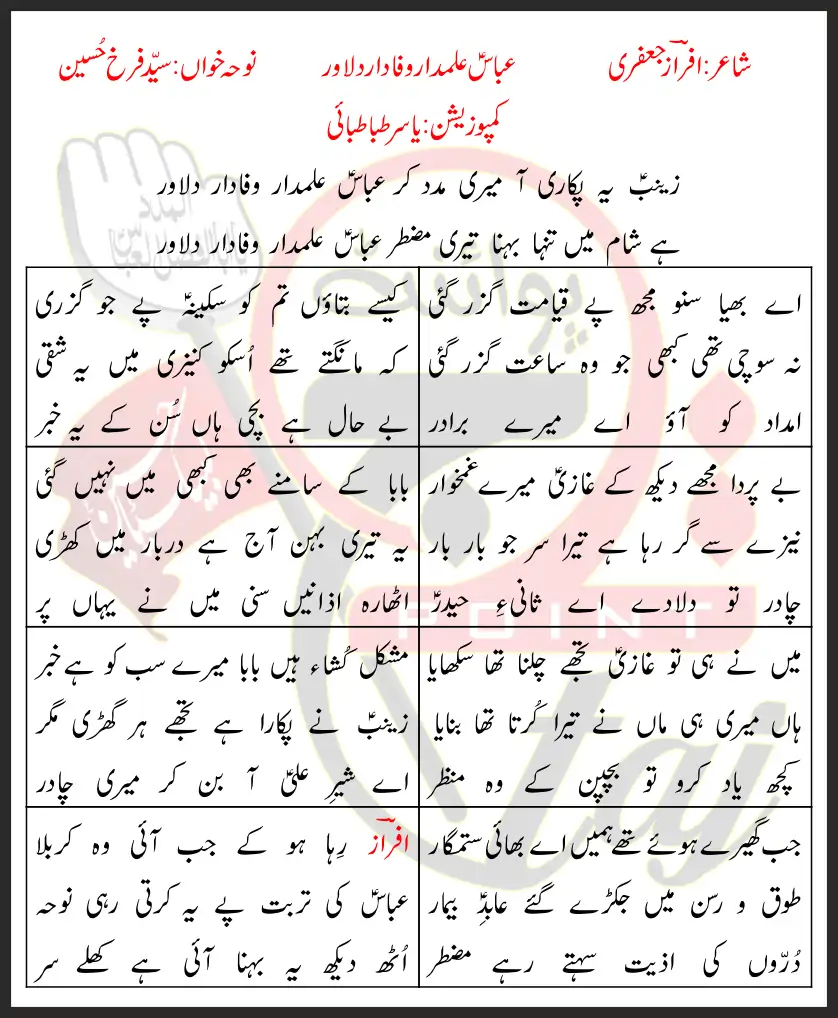 شاعر: افرازؔ جعفری
عباسؑ علمدار وفادار دلاور
نوحہ خواں: سیّد فرخ حُسین
کمپوزیشن: یاسر طباطبائی
زینبؑ یہ پکاری آ میری مدد کر عباسؑ علمدار وفادار دلاور
ہے شام میں تنہا بہنا تیری مضطر عباسؑ علمدار وفادار دلاور
اے بھیا سنو مجھ پے قیامت گزر گئی
نہ سوچی تھی کبھی جو وہ ساعت گزر گئی
امداد کو آؤ اے میرے برادر
کیسے بتاؤں تم کو سکینہؑ پے جو گزری
کہ مانگتے تھے اُسکو کنیزی میں یہ شقی
بے حال ہے بچی ہاں سُن کے یہ خبر
بے پردا مجھے دیکھ کے غازیؑ میرے غمخوار
نیزے سے گر رہا ہے تیرا سر جو بار بار
چادر تو دلادے اے ثانیِء حیدرؑ
بابا کے سامنے بھی کبھی میں نہیں گئی
یہ تیری بہن آج ہے دربار میں کھڑی
اٹھارہ اذانیں سنی میں نے یہاں پر
میں نے ہی تو غازیؑ تجھے چلنا تھا سکھایا
ہاں میری ہی ماں نے تیرا کُرتا تھا بنایا
کچھ یاد کرو تو بچپن کے وہ منظر
مشکل کُشاء ہیں بابا میرے سب کو ہے خبر
زینبؑ نے پکارا ہے تجھے ہر گھڑی مگر
اے شیرِ علیؑ آ بن کر میری چادر
جب گھیرے ہوئے تھے ہمیں اے بھائی ستمگار
طوق و رسن میں جکڑے گئے عابدِؑ بیمار
دُرّوں کی اذیت سہتے رہے مضطر
افرازؔ رِہا ہو کے جب آئی وہ کربلا
عباسؑ کی تربت پے یہ کرتی رہی نوحہ
اُٹھ دیکھ یہ بہنا آئی ہے کھلے سر
پوائنٹ
POINT
taj